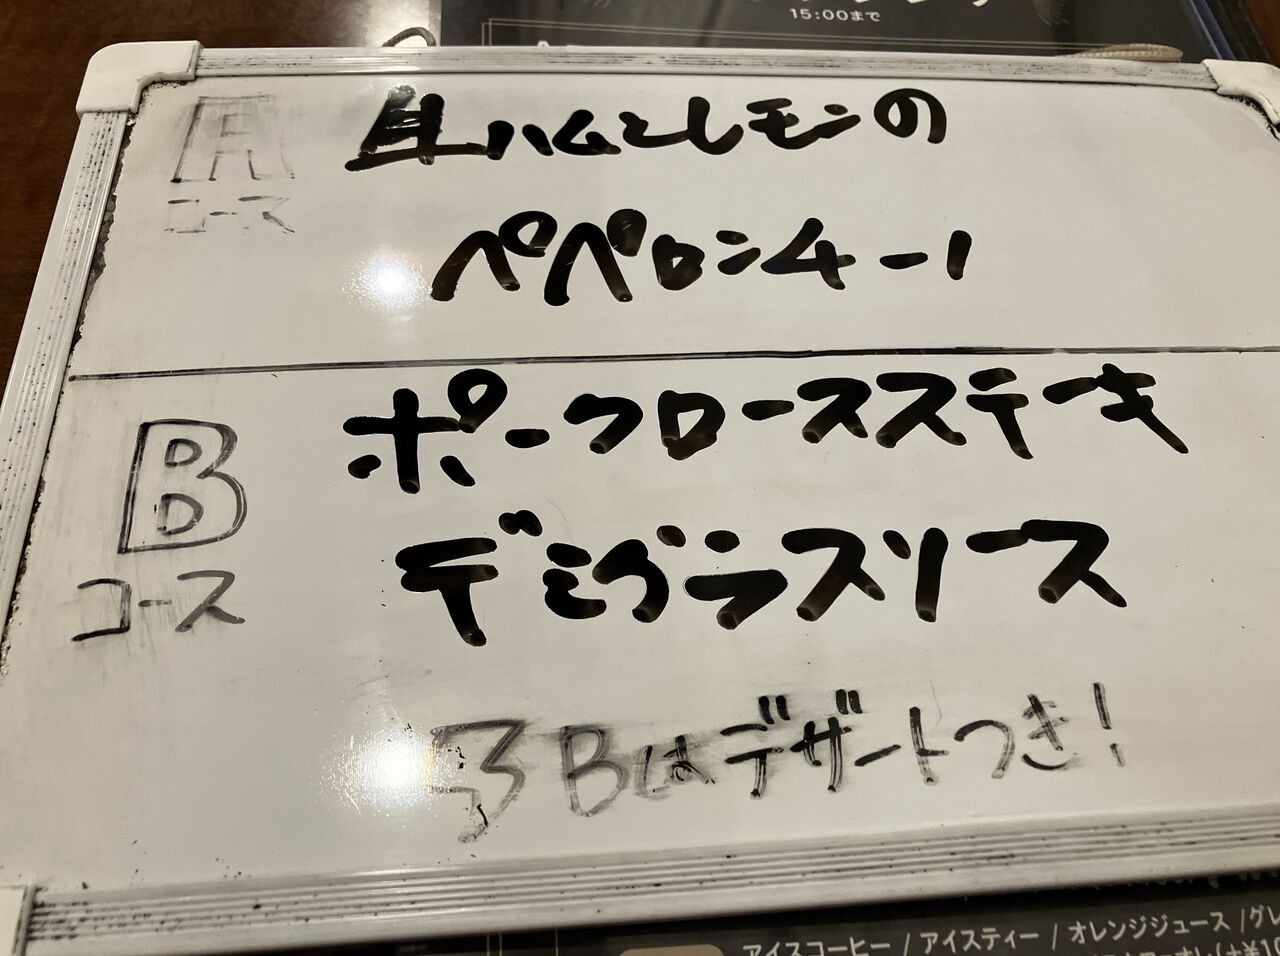 15:00まで
A
コース
生ハムとレモンの
ペペロンチーノ
B
コース
ポークロースステーキ
デミグラスソース
Bはデザートつき!
アイスコーヒー / アイスティー / オレンジジュース /